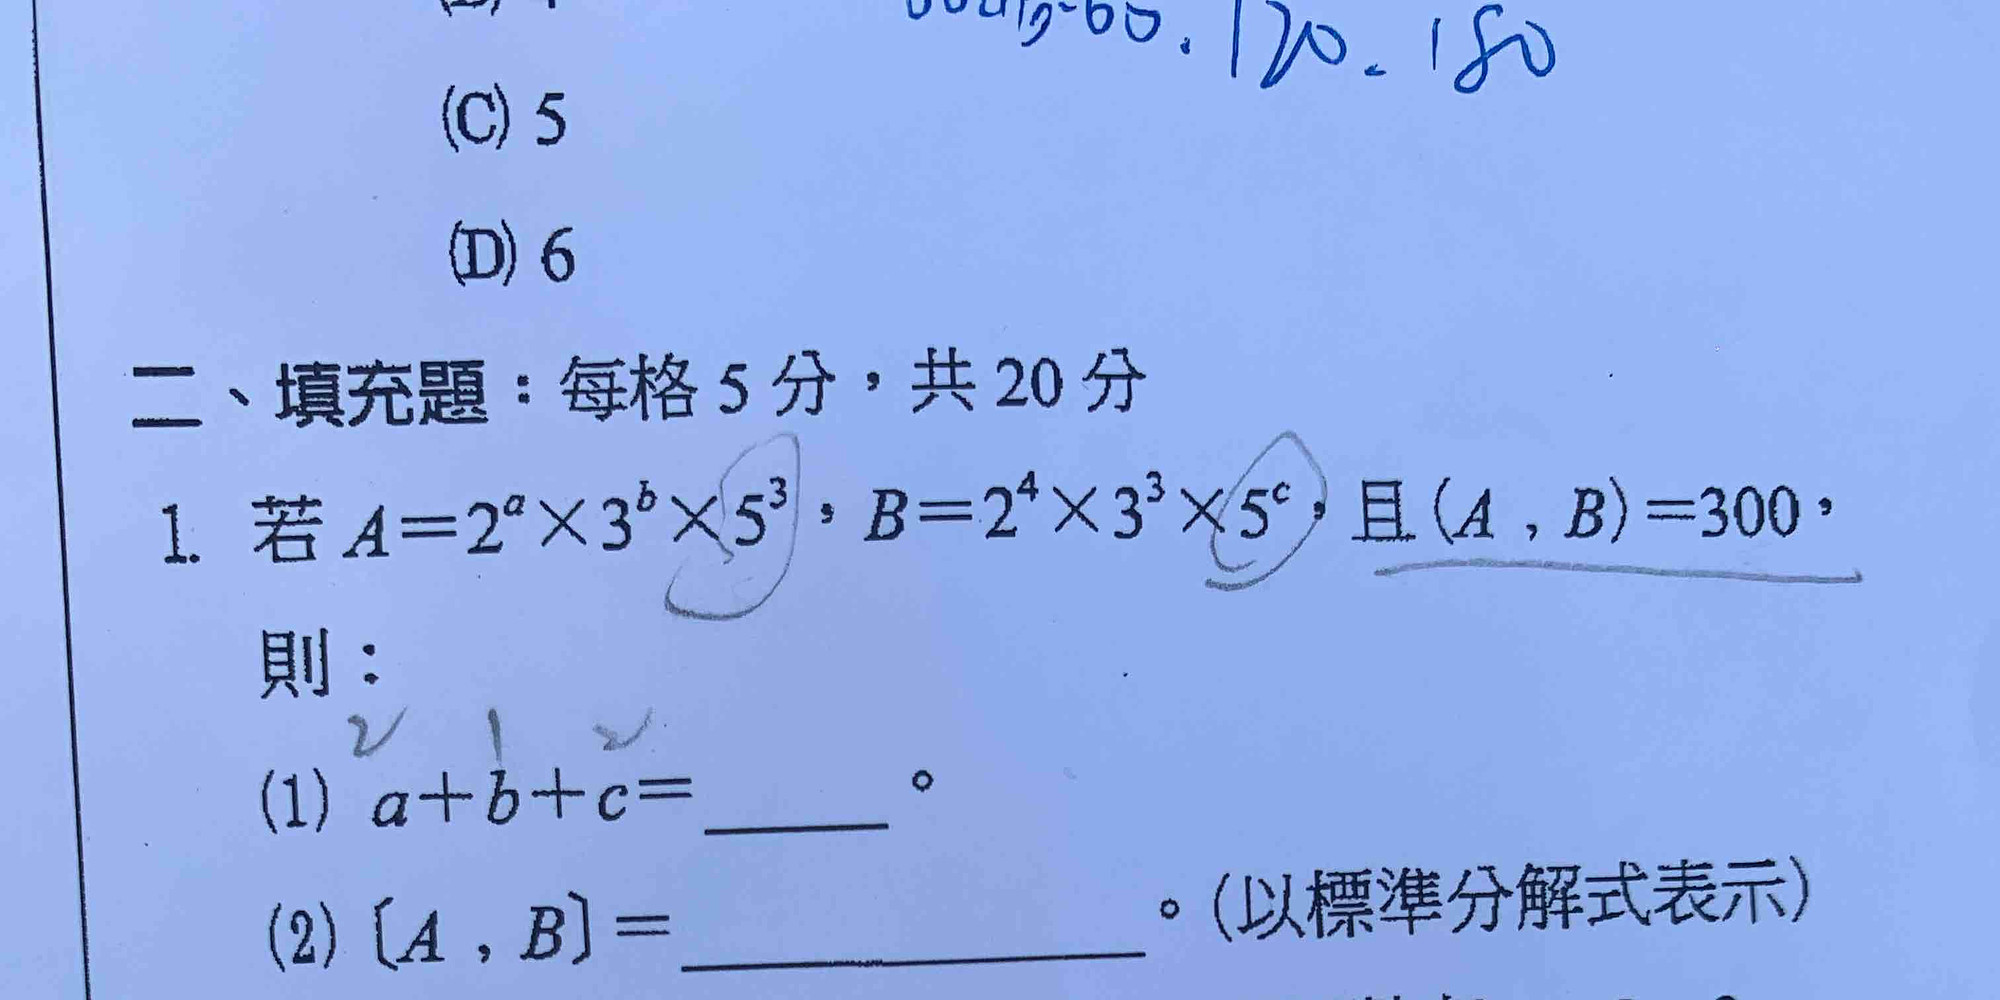 60. 120. 180
(C) 5
(D) 6
二、填充題：每格 5 分，共 20 分
1. 若 A=2ᵃ×3ᵇ×5³，B=2⁴×3³×5ᶜ，且(A，B)=300，
則：
2 1 2
(1) a+b+c=______。
(2)〔A，B〕=____________。(以標準分解式表示)